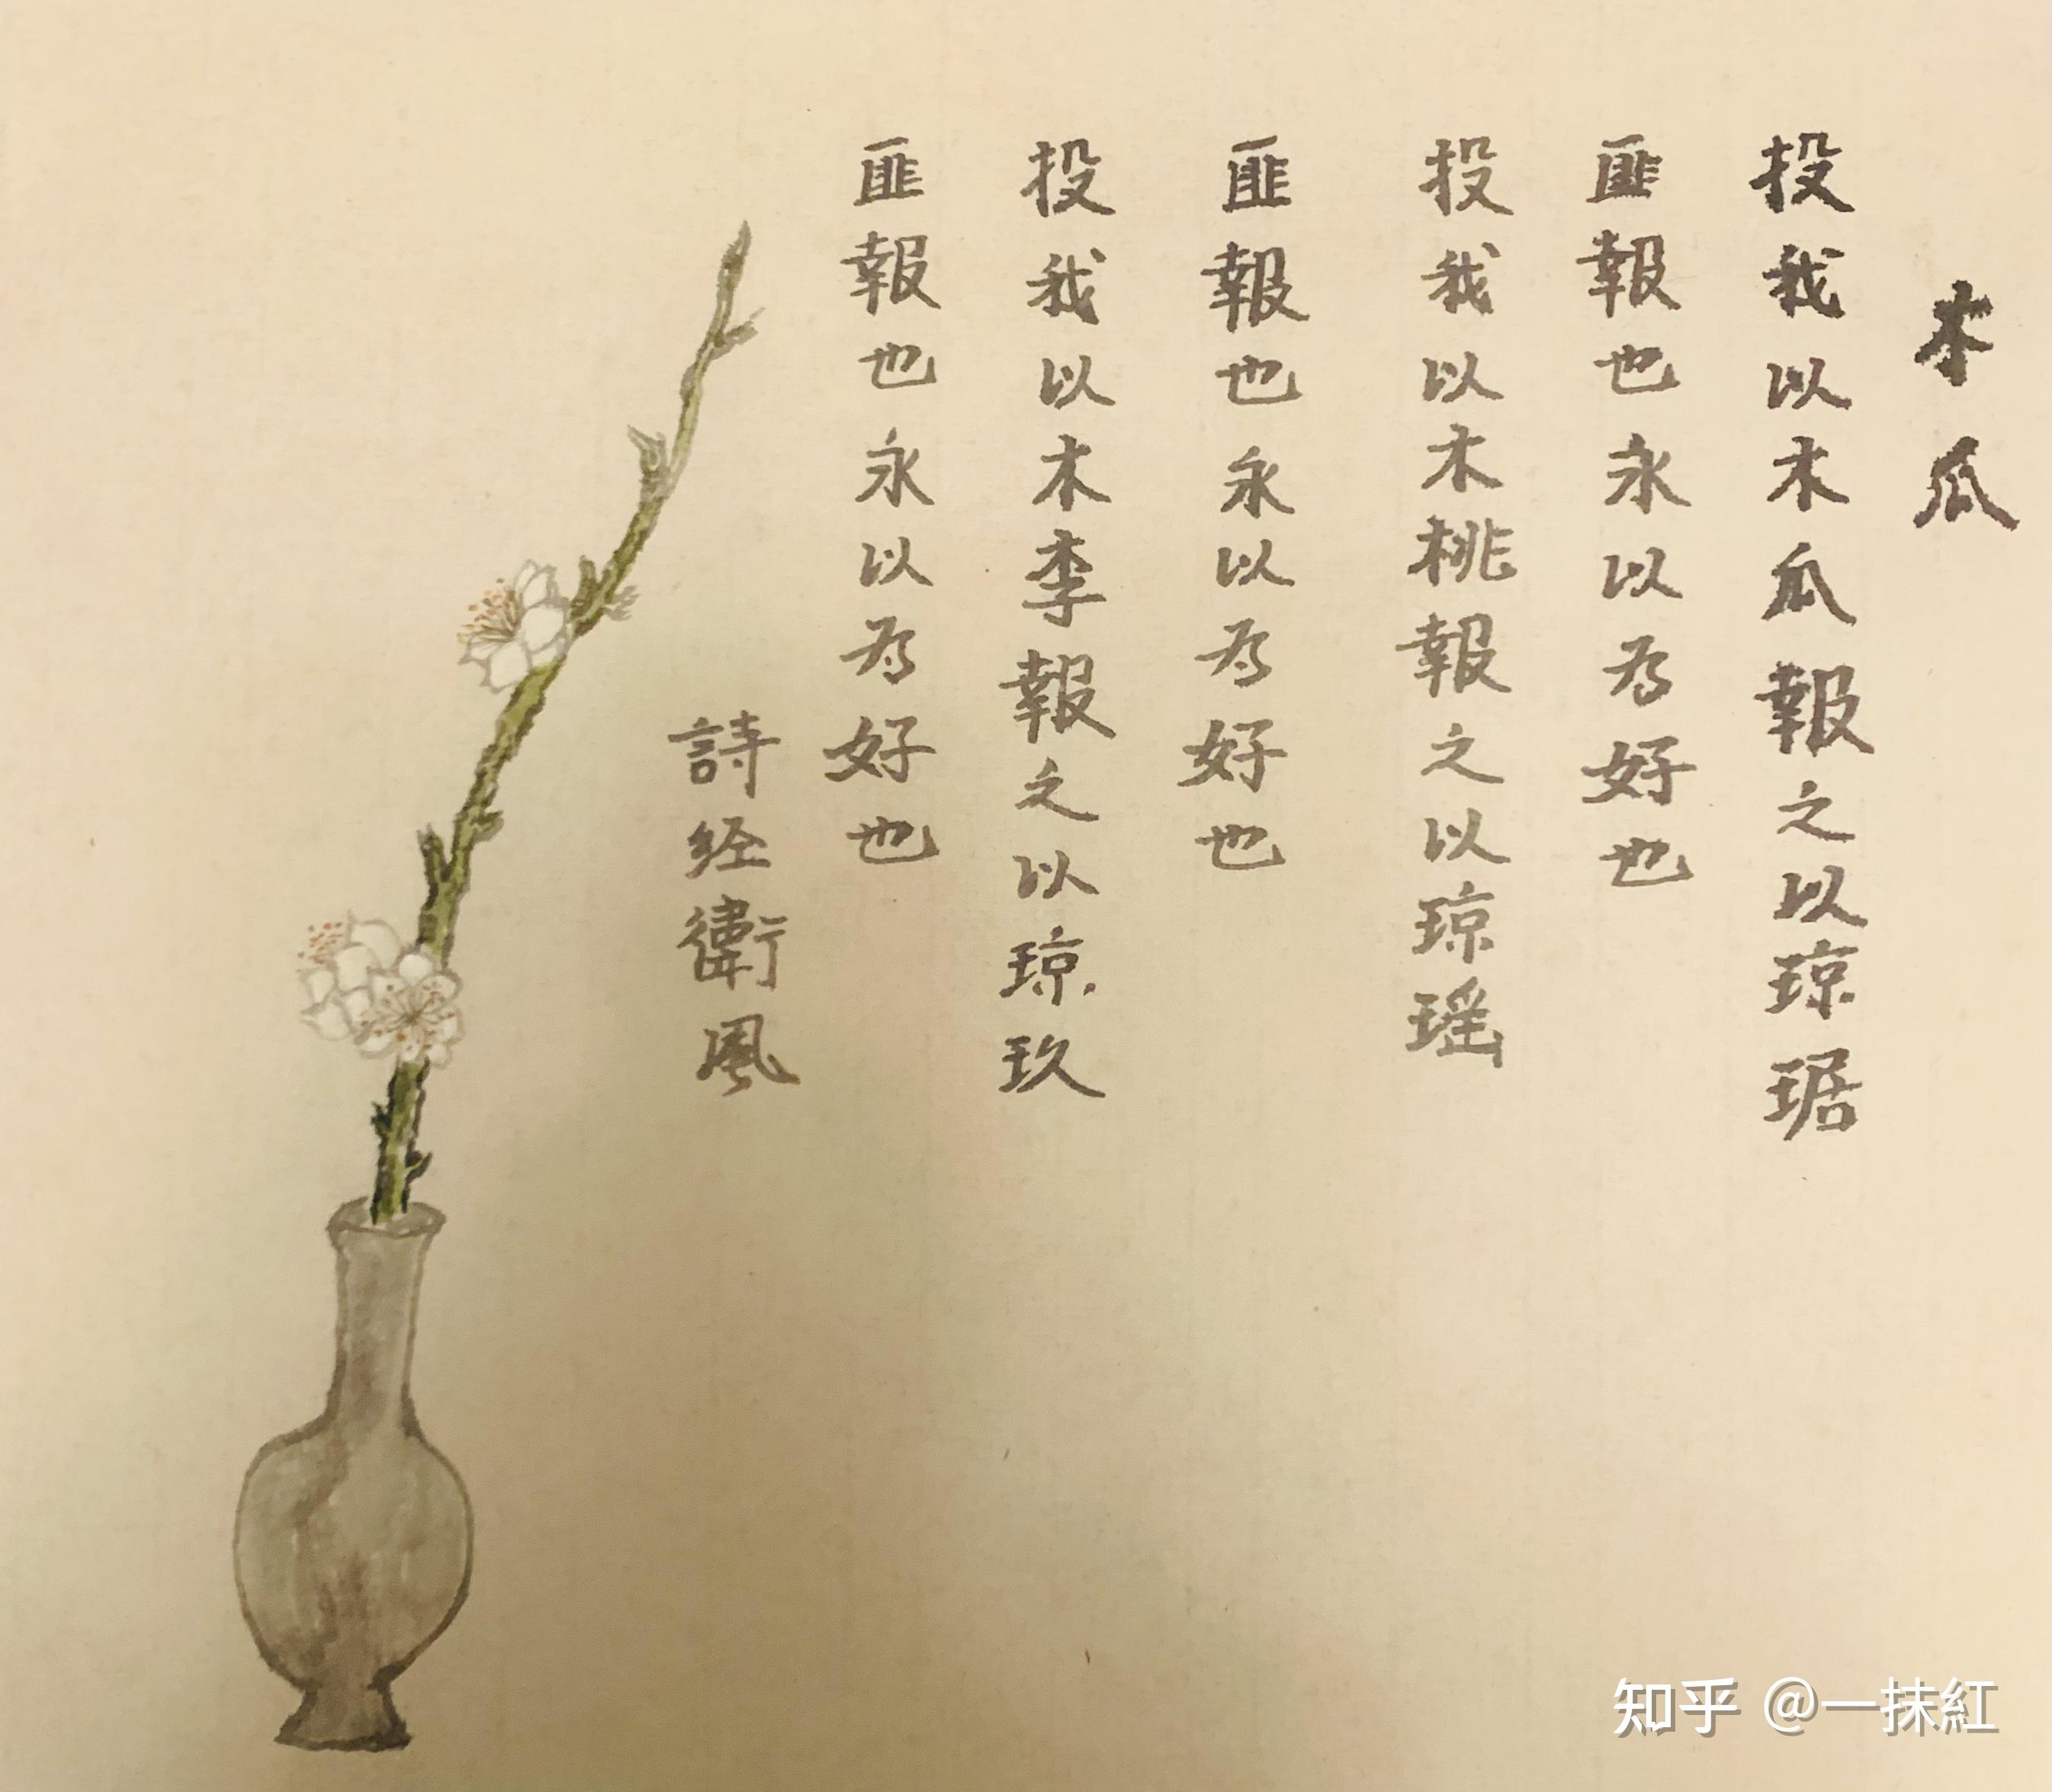 木瓜
投我以木瓜報之以琼琚
匪報也永以为好也
投我以木桃報之以琼瑶
匪報也永以为好也
投我以木李報之以琼玖
匪報也永以为好也
詩经衛風
知乎 @一抹紅